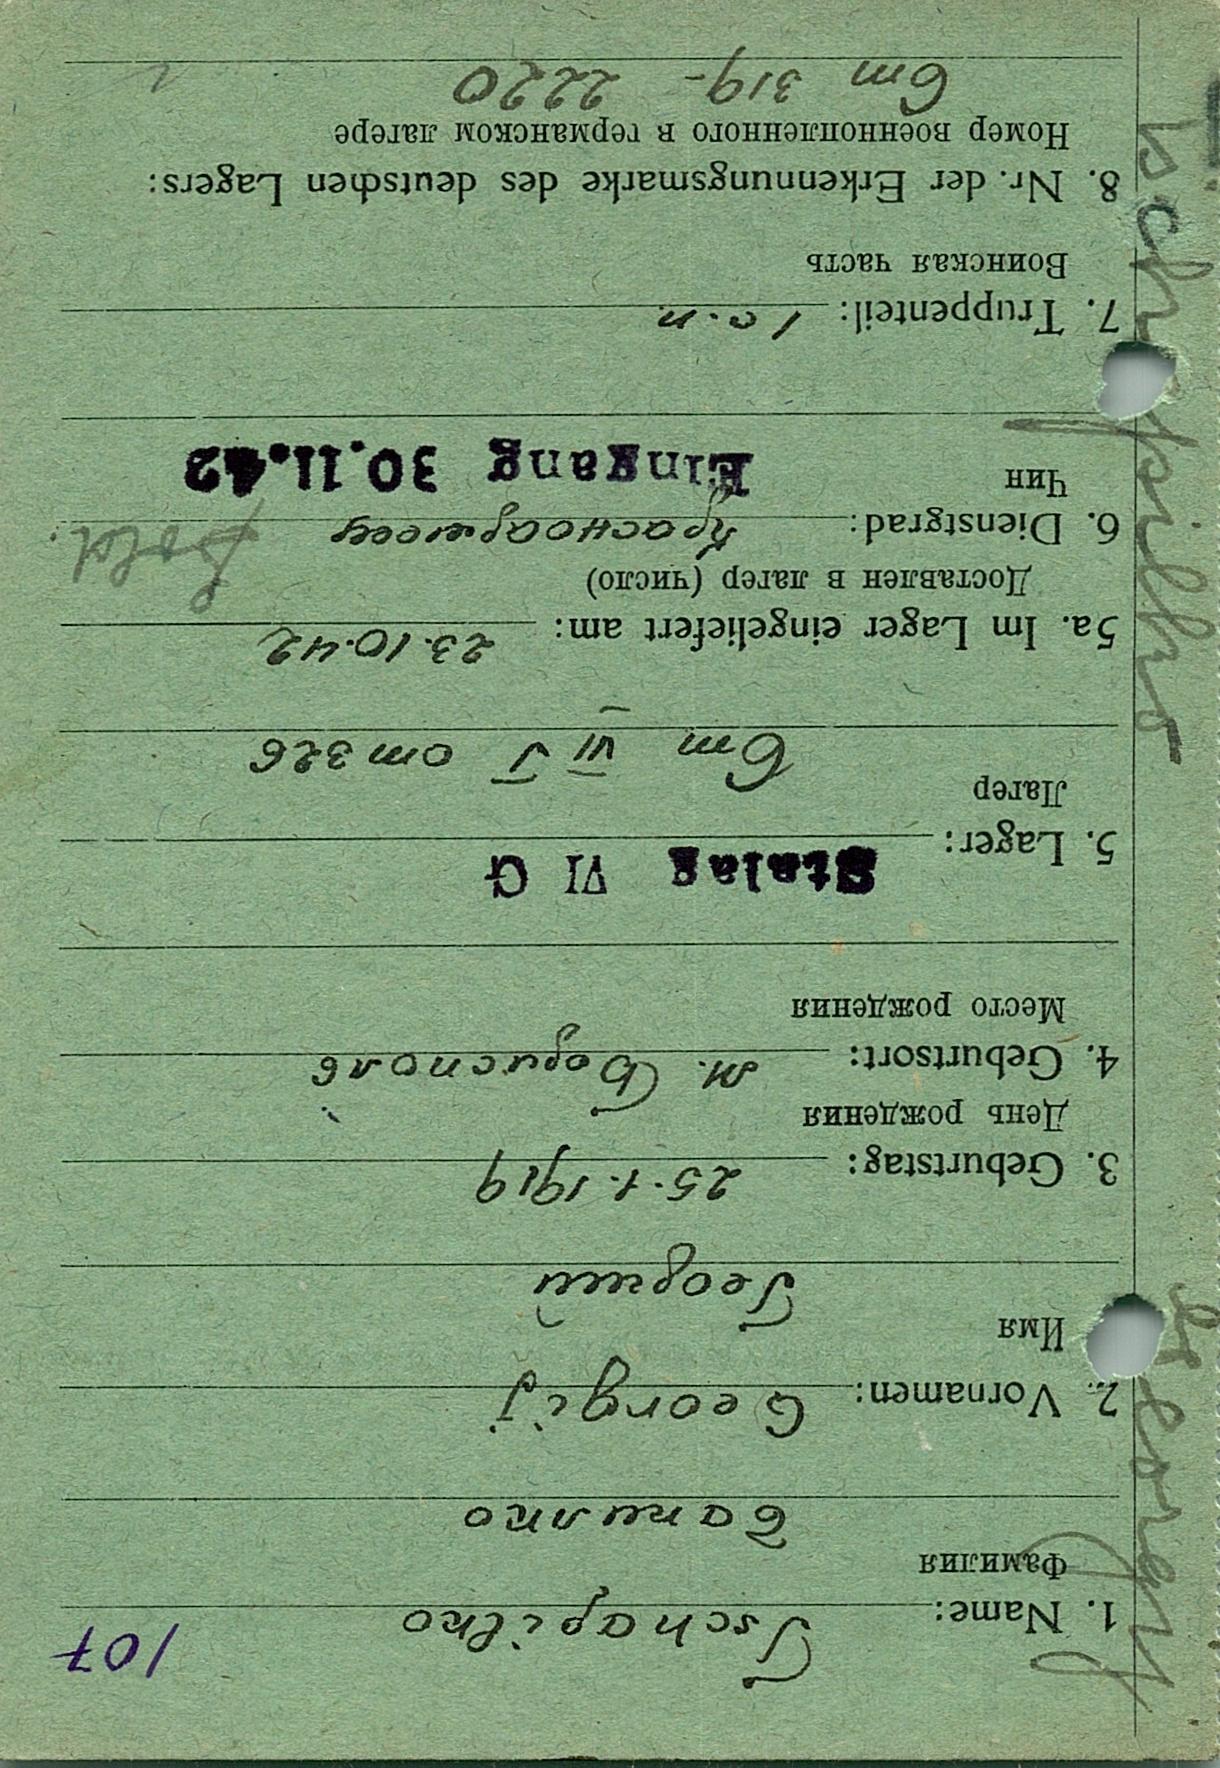 107
1. Name: Tschapilko
Фамилия
Чапилко
2. Vornamen: Georgij
Имя
Георгий
3. Geburtstag: 25.1.1919
День рождения
4. Geburtsort: м. Борисполь
Место рождения
Stalag VI G
5. Lager:
Лагер
Ст VI J от 326
5a. Im Lager eingeliefert am: 23.10.42
Доставлен в лагер (число)
6. Dienstgrad: Красноармеец Sold.
Чин
Eingang 30.11.42
7. Truppenteil: 1 с.п.
Воинская часть
8. Nr. der Erkennungsmarke des deutschen Lagers:
Номер военнопленного в германском лагере
Ст 319 - 2220
Tschapilko Georgij